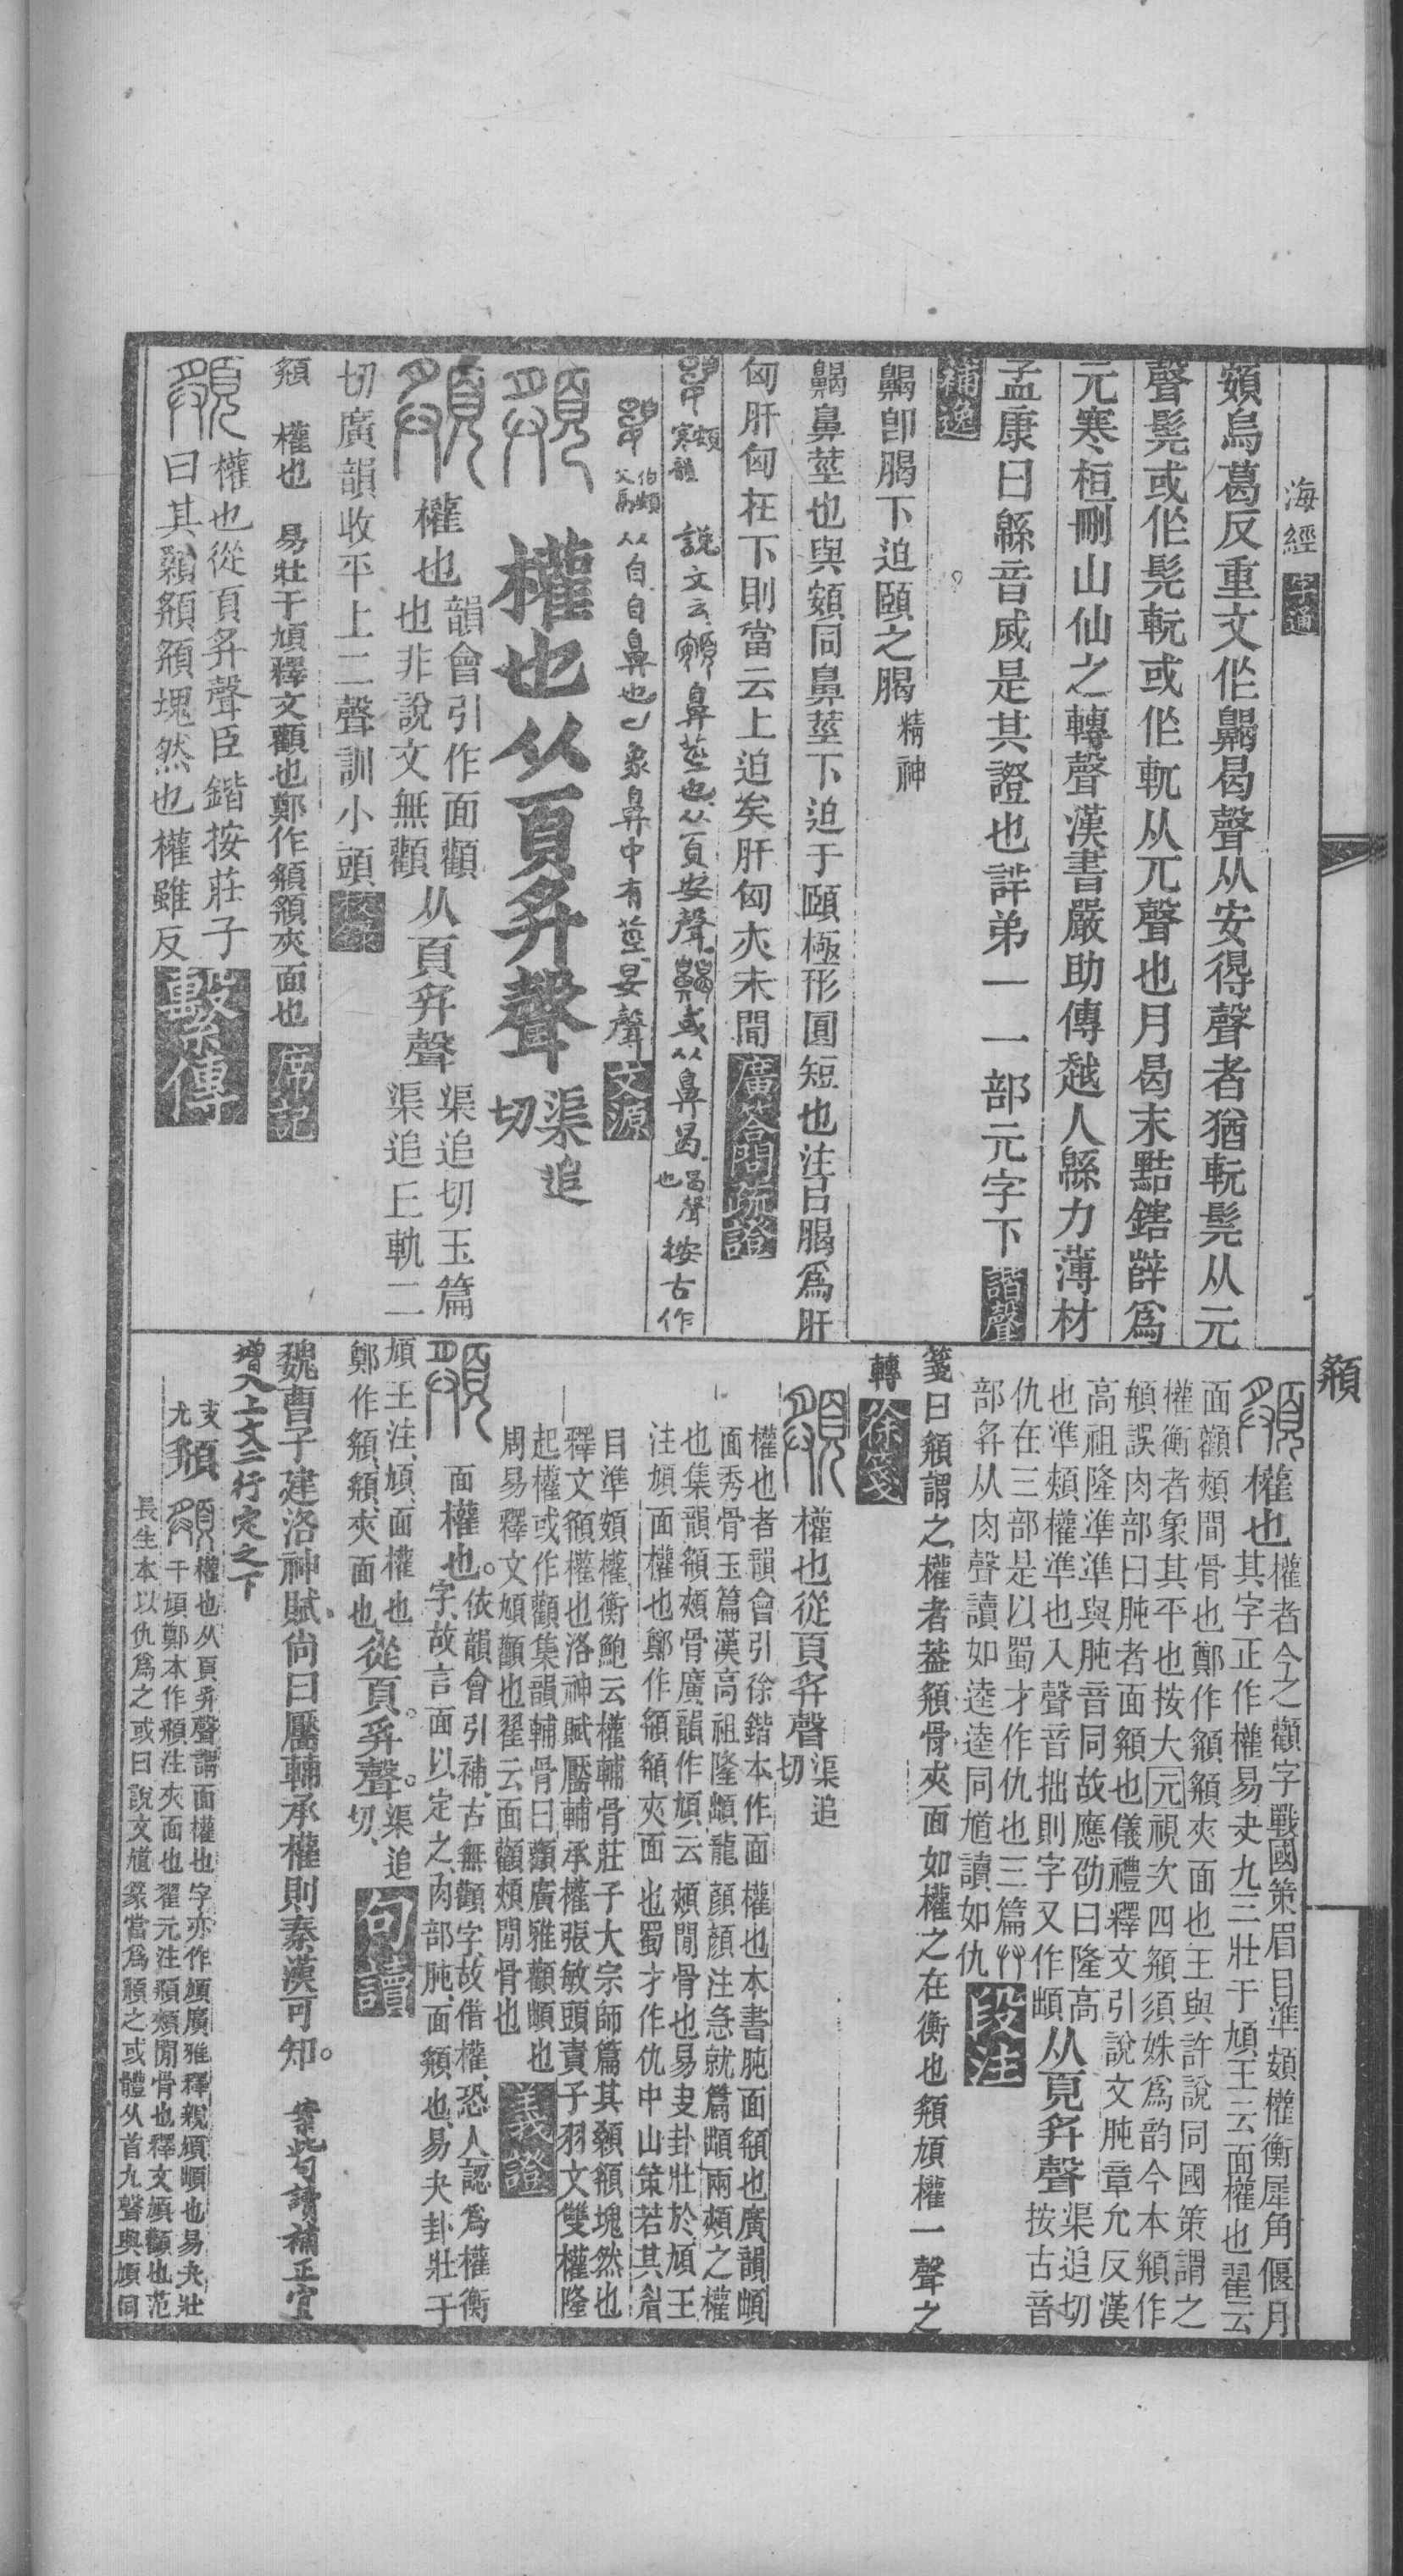 海經
頞烏葛反重文作齃曷聲从安得聲者猶軏髡从元
聲髡或作髨軏或作軏从兀聲也月曷末黠鎋薛爲
元寒桓刪山仙之轉聲漢書嚴助傳越人緜力薄材
孟康曰緜音滅是其證也詳弟一一部元字下諧聲
補逸
齃卽腸下迫頤之腸精神
齃鼻莖也與頞同鼻莖下迫于頤極形圓短也注曰腸爲肝
匈肝匈在下則當云上迫矣肝匈亦未聞廣答問疏證
說文云頞鼻莖也从頁安聲齃或从鼻曷曷聲也按古作
从自自鼻也象鼻中有莖晏聲文源
權也从頁𢍏聲渠追切
權也韻會引作面顴
也非說文無顴从頁𢍏聲渠追切玉篇
渠追丘軌二
切廣韻收平上二聲訓小頭
頯 權也 易壯于頄釋文顴也鄭作頯頯夾面也席記
權也從頁𢍏聲臣鍇按莊子
曰其顙頯頯塊然也權雖反繫傳
頯
權也權者今之顴字戰國策眉目準頞權衡犀角偃月
其字正作權易夬九三壯于頄王云面權也翟云
面顴頰間骨也鄭作頯頯夾面也王與許說同國策謂之
權衡者象其平也按大元視次四頯須姝爲韵今本頯作
頄誤肉部曰肫者面頯也儀禮釋文引說文肫章允反漢
高祖隆準準與肫音同故應劭曰隆高
也準頰權準也入聲音拙則字又作䪼从頁𢍏聲渠追切
按古音
仇在三部是以蜀才作仇也三篇
部𢍏从肉聲讀如逵逵同馗讀如仇段注
箋曰頯謂之權者蓋頯骨夾面如權之在衡也頯頄權一聲之
轉徐箋
權也從頁𢍏聲渠追切
權也者韻會引徐鍇本作面權也本書肫面頯也廣韻䪼
面秀骨玉篇漢高祖隆䪼龍顏顏注急就篇䪼兩頰之權
也集韻頯頰骨廣韻作頄云頰閒骨也易夬卦壯於頄王
注頄面權也鄭作頯頯夾面也蜀才作仇中山策若其眉
目準頞權衡鮑云權輔骨莊子大宗師篇其顙頯塊然也
釋文頯權也洛神賦靨輔承權張敏頭責子羽文雙權隆
起權或作顴集韻輔骨曰顴廣雅顴䪼也
周易釋文頄顴也翟云面顴頰閒骨也義證
面權也。依韻會引補古無顴字故借權恐人認爲權衡
字故言面以定之肉部肫面頯也易夬卦壯于
頄王注頄面權也
鄭作頯頯夾面也從頁。𢍏聲。渠追切句讀
魏曹子建洛神賦尙曰靨輔承權則秦漢可知。 案此句讀補正宜
增入上文二行定之下
頯權也从頁𢍏聲謂面權也字亦作頄廣雅釋親頄䪼也易夬壯
于頄鄭本作頯注夾面也翟元注頯頰閒骨也釋文頄顴也范
長生本以仇爲之或曰說文馗篆當爲頯之或體从首九聲與頄同